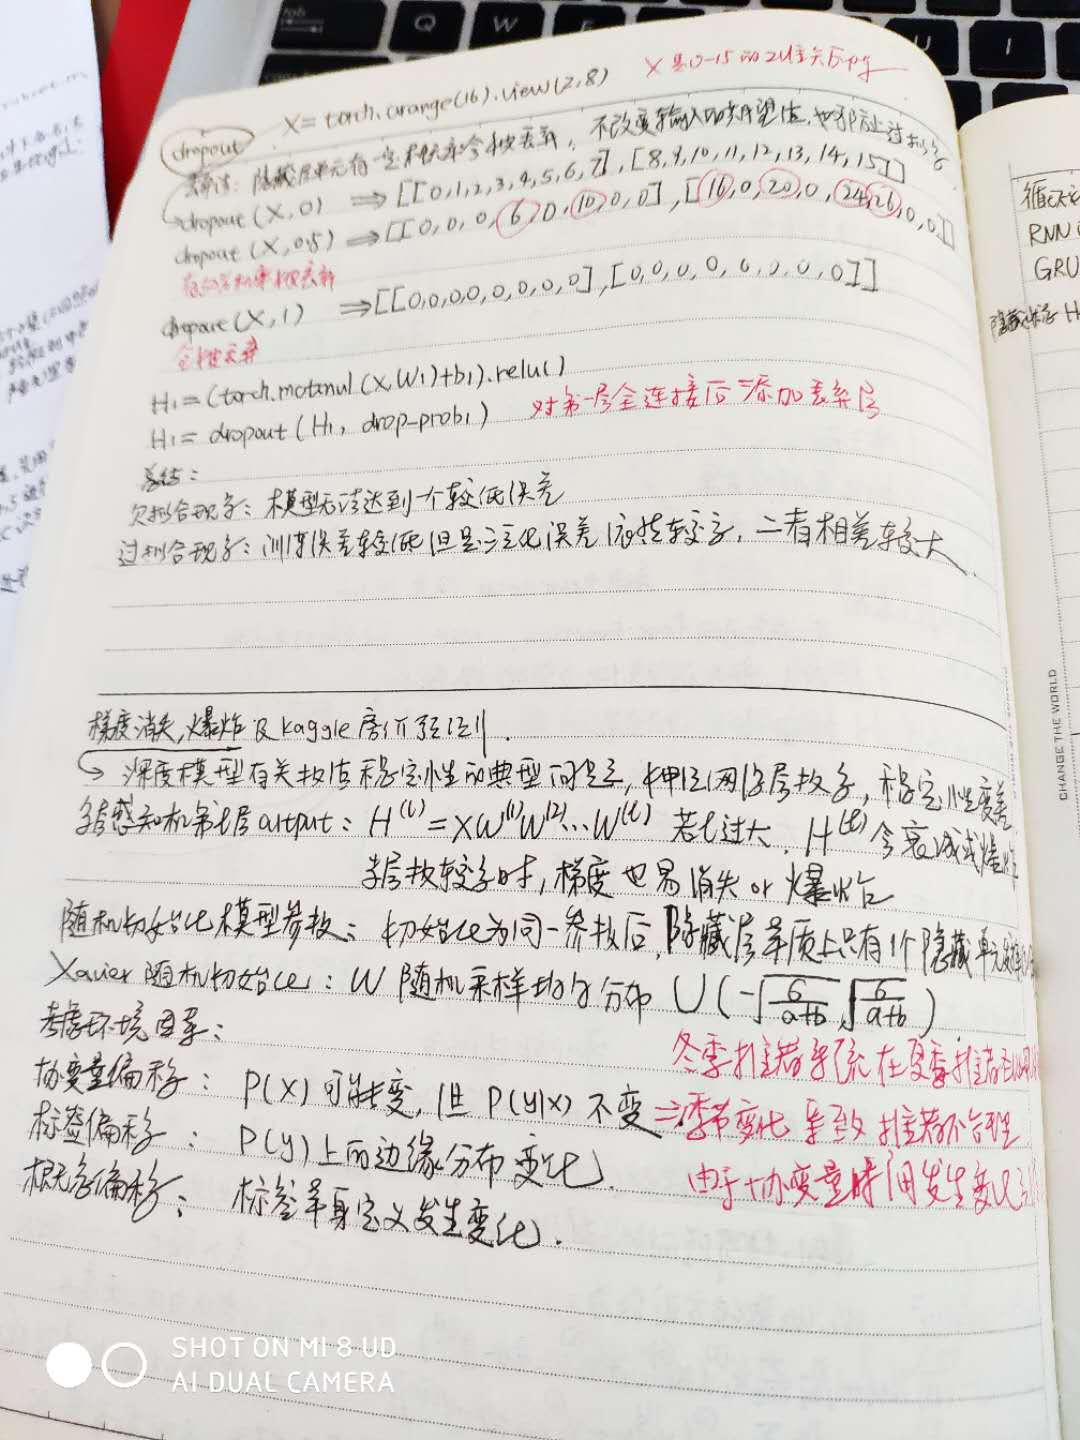 X = torch.arange(16).view(2,8)
X是0-15的2维矩阵
dropout
丢弃法: 隐藏层单元有一定概率会被丢弃, 不改变输入的期望值, 也抑制过拟合
dropout (X, 0) ⇒ [[0,1,2,3,4,5,6,7], [8,9,10,11,12,13,14,15]]
dropout (X, 0.5) ⇒ [[0,0,0,6,0,10,0,0], [16,0,20,0,24,26,0,0]]
dropout (X, 1) ⇒ [[0,0,0,0,0,0,0,0], [0,0,0,0,0,0,0,0]]
全被丢弃
H₁ = (torch.matmul (X, W₁)+b₁).relu()
H₁ = dropout (H₁, drop-prob₁) 对第一层全连接后添加丢弃层
总结:
欠拟合现象: 模型无法达到一个较低误差
过拟合现象: 训练误差较低但是泛化误差依然较高, 二者相差较大
梯度消失, 爆炸及Kaggle房价预测.
深度模型有关数值稳定性的典型问题, 神经网络层数多, 稳定性变差
多层感知机第l层output: H⁽ˡ⁾ = XW⁽¹⁾W⁽²⁾...W⁽ˡ⁾ 若l过大, H⁽ˡ⁾会衰减或爆炸
当层数较多时, 梯度也易消失 or 爆炸
随机初始化模型参数: 初始化为同一参数后, 隐藏层本质上只有1个隐藏单元
Xavier随机初始化: W随机采样均匀分布 U(-√(6/(a+b)), √(6/(a+b)))
考虑环境因素:
协变量偏移: P(x)可能变, 但P(y|x)不变
标签偏移: P(y)上的边缘分布变化.
概念偏移: 标签本身定义发生变化.
冬季推荐系统在夏季推荐
季节变化导致推荐不合理
由于协变量时间发生变化
循环
RNN
GRU
隐藏状态 H
CHANGE THE WORLD
Q
W
U
I
SHOT ON MI 8 UD
AI DUAL CAMERA